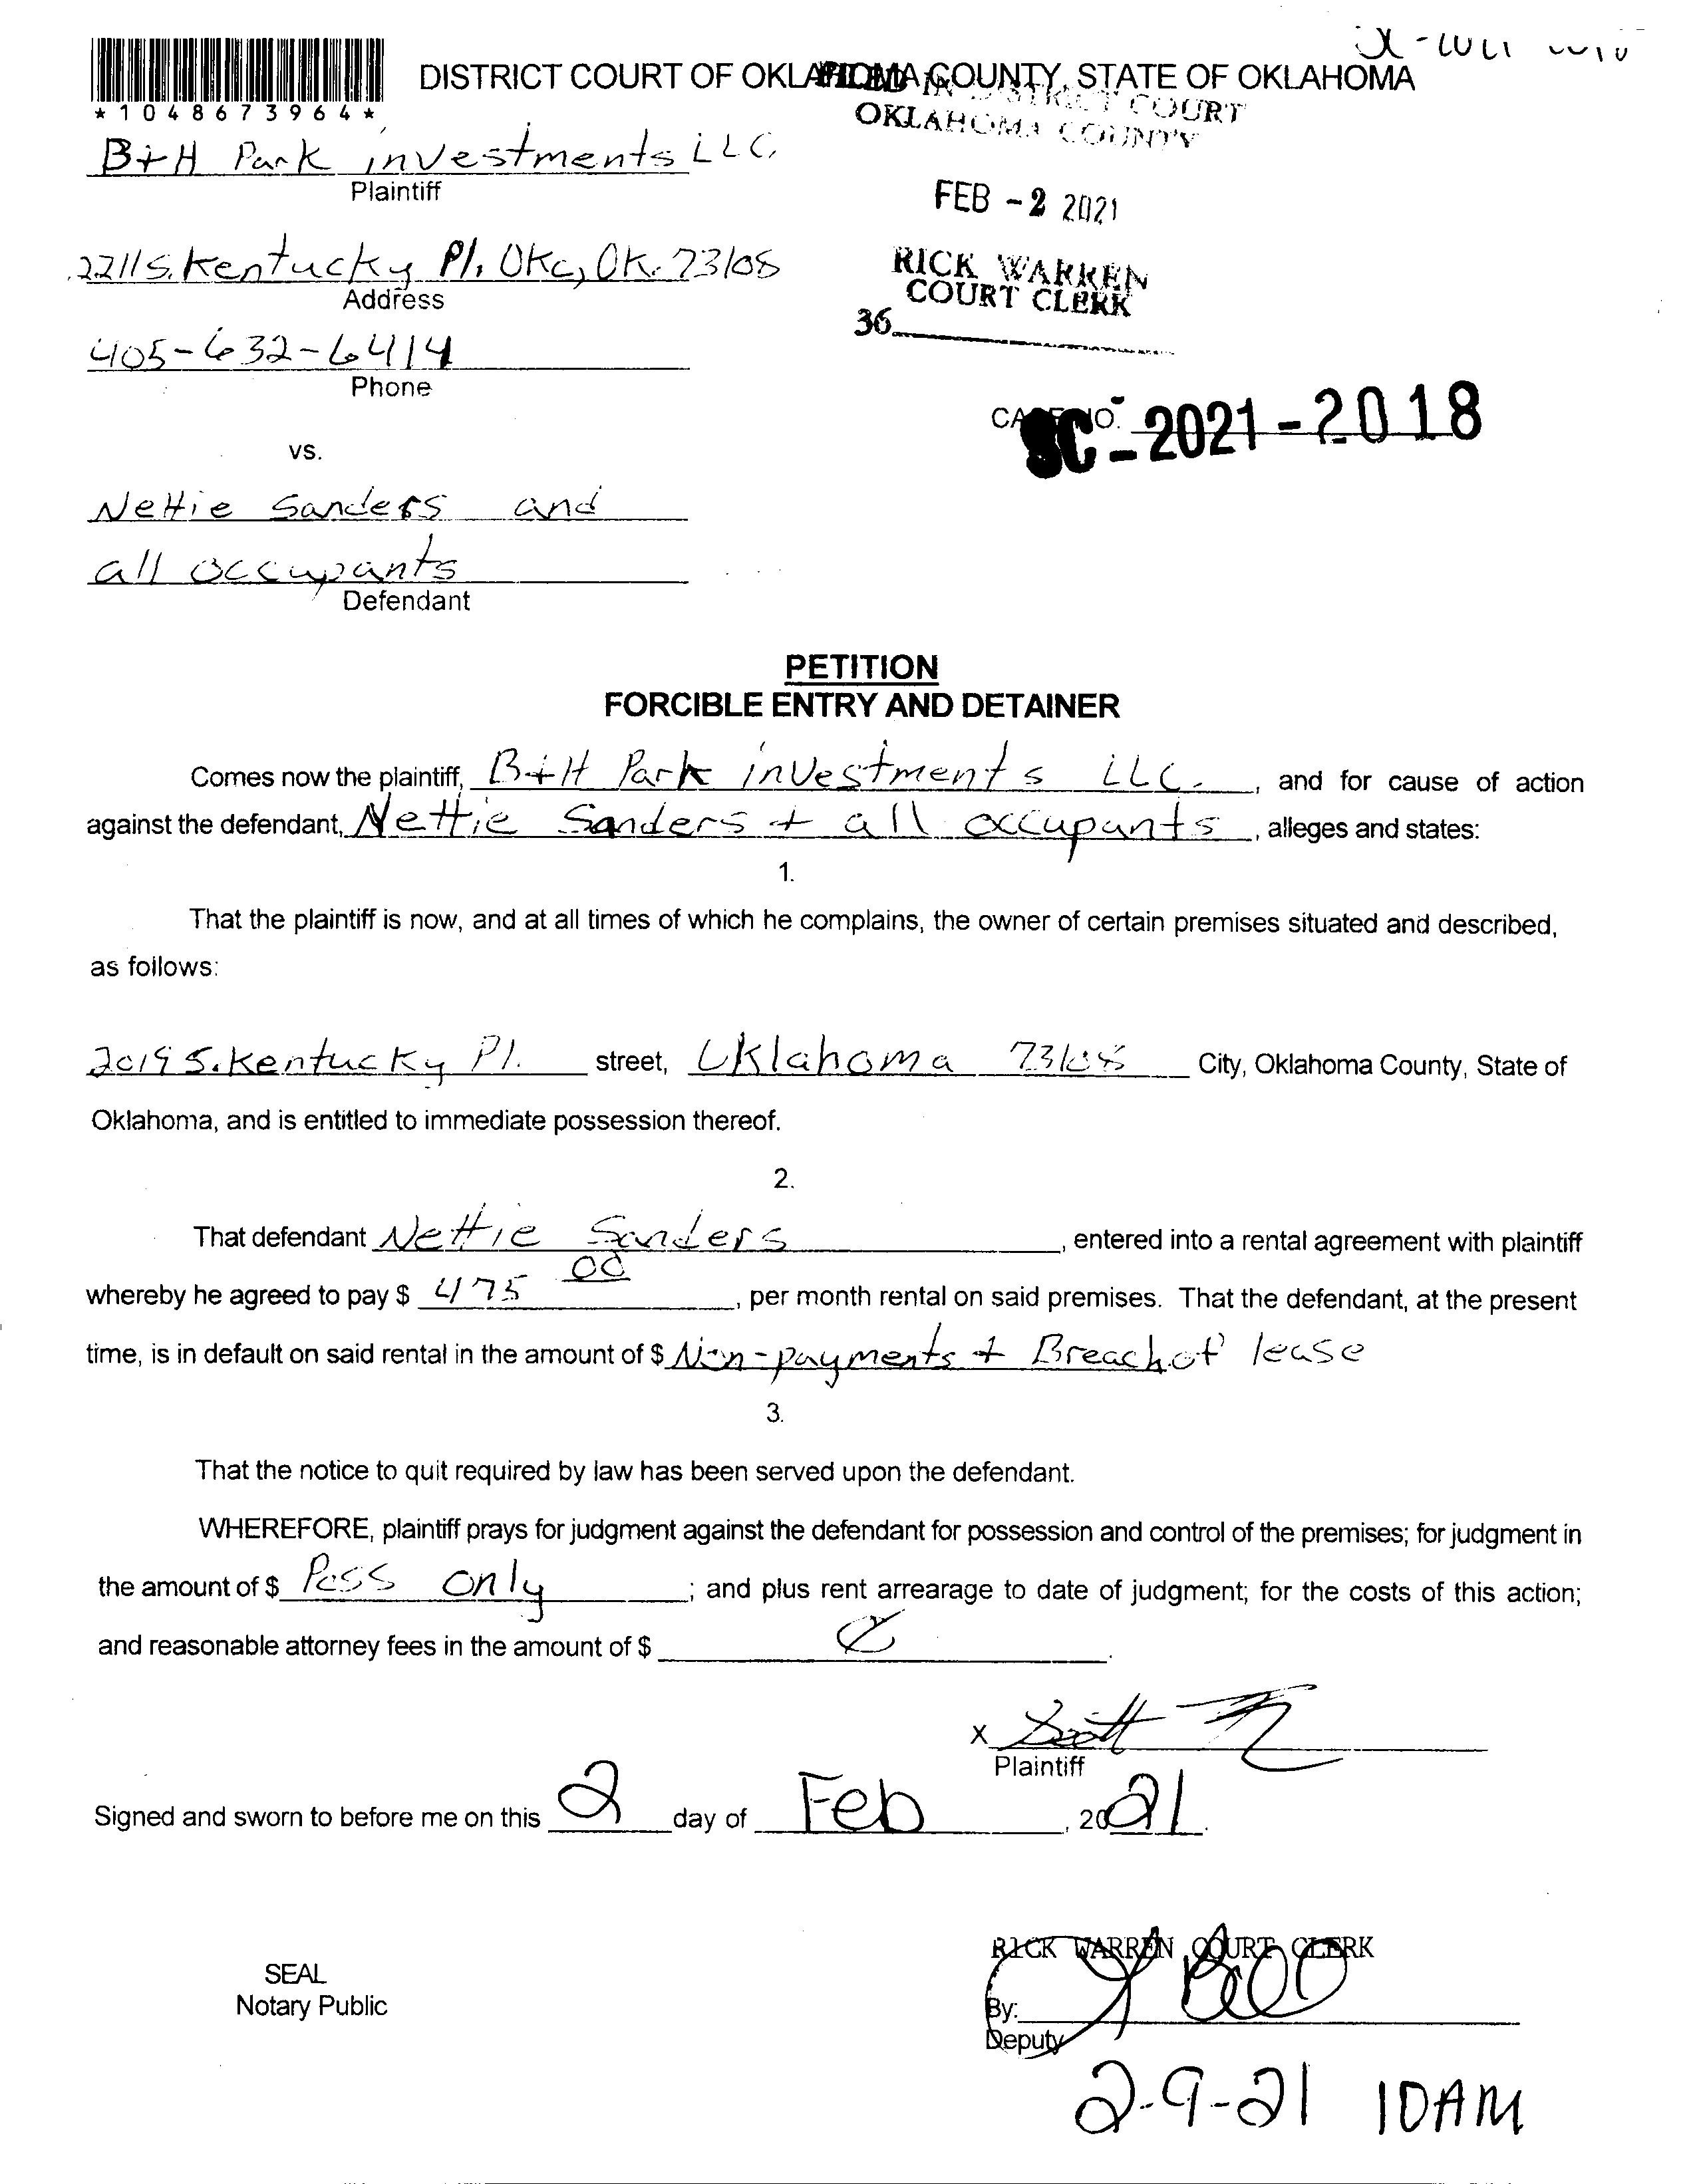 DISTRICT COURT OF OKLAHOMA COUNTY, STATE OF OKLAHOMA
*1048673964*
FILED IN DISTRICT COURT
OKLAHOMA COUNTY
B+H Park investments LLC.
Plaintiff
FEB -2 2021
2211 S. Kentucky Pl. OKc, OK. 73108
Address
RICK WARREN
COURT CLERK
36
405-632-6414
Phone
CASE NO. SC-2021-2018
vs.
Nettie Sanders and
all occupants
Defendant
PETITION
FORCIBLE ENTRY AND DETAINER
Comes now the plaintiff, B+H Park investments LLC., and for cause of action
against the defendant, Nettie Sanders + all occupants, alleges and states:
1.
That the plaintiff is now, and at all times of which he complains, the owner of certain premises situated and described,
as follows:
2019 S. Kentucky Pl. street, Oklahoma 73108 City, Oklahoma County, State of
Oklahoma, and is entitled to immediate possession thereof.
2.
That defendant Nettie Sanders, entered into a rental agreement with plaintiff
whereby he agreed to pay $ 475 00, per month rental on said premises. That the defendant, at the present
time, is in default on said rental in the amount of $ Non-payments + Breach of lease
3.
That the notice to quit required by law has been served upon the defendant.
WHEREFORE, plaintiff prays for judgment against the defendant for possession and control of the premises; for judgment in
the amount of $ Poss only; and plus rent arrearage to date of judgment; for the costs of this action;
and reasonable attorney fees in the amount of $
X Scott
Plaintiff
Signed and sworn to before me on this 2 day of Feb, 2021.
RICK WARREN, COURT CLERK
SEAL
Notary Public
By:
Deputy
2-9-21 10AM